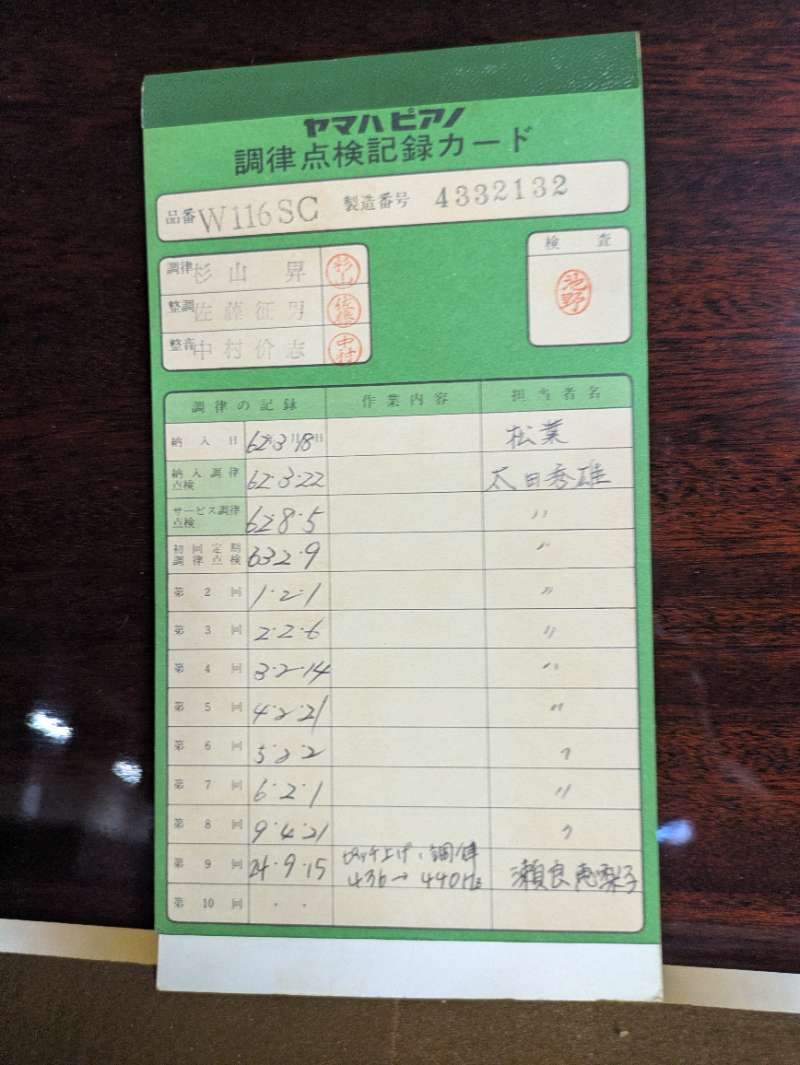 ヤマハピアノ
調律点検記録カード
品番 W116SC 製造番号 4332132
調律 杉山 昇 杉山
整調 佐藤征男 佐藤
整音 中村价志 中村
検査
池野
調律の記録 作業内容 担当者名
納入日 62年3月18日 松葉
納入調律点検 62・3・22 太田秀雄
サービス調律点検 62・8・5 〃
初回定期調律点検 63・2・9 〃
第2回 1・2・1 〃
第3回 2・2・6 〃
第4回 3・2・14 〃
第5回 4・2・21 〃
第6回 5・2・2 〃
第7回 6・2・1 〃
第8回 9・4・21 〃
第9回 24・9・15 ピッチ上げ、調律 瀬良恵梨子
436→440Hz
第10回 ・ ・